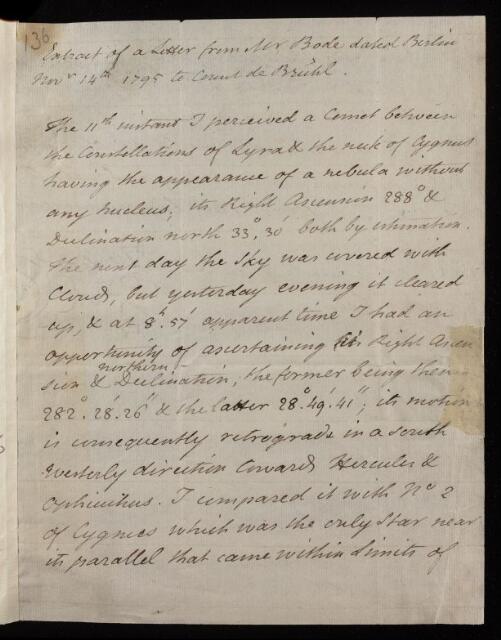 136
Extract of a Letter from Mr Bode dated Berlin
Novr 14th 1795 to Count de Brühl.
The 11th instant I perceived a Comet between
the Constellations of Lyra & the neck of Cygnus
having the appearance of a nebula without
any nucleus; its Right Ascension 288° &
Declination north 33°, 30' both by estimation.
The next day the Sky was covered with
Clouds, but yesterday evening it cleared
up, & at 8h. 57' apparent time I had an
opportunity of ascertaining its Right Ascen
northern
sion & Declination, the former being then
282°. 28'. 26" & the latter 28°. 49'. 41"; its motion
is consequently retrograde in a south
Westerly direction towards Hercules &
Ophiuchus. I compared it with No 2
of Cygnus which was the only Star near
its parallel that came within Limits of